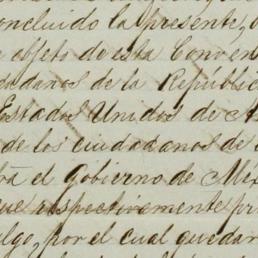 concluido la presente,
objeto de esta Conven
dadanos de la Repúblic
Estados Unidos de A
de los ciudadanos de
rá el Gobierno de Mex
que respectivamente pr
algo, por el cual quedar